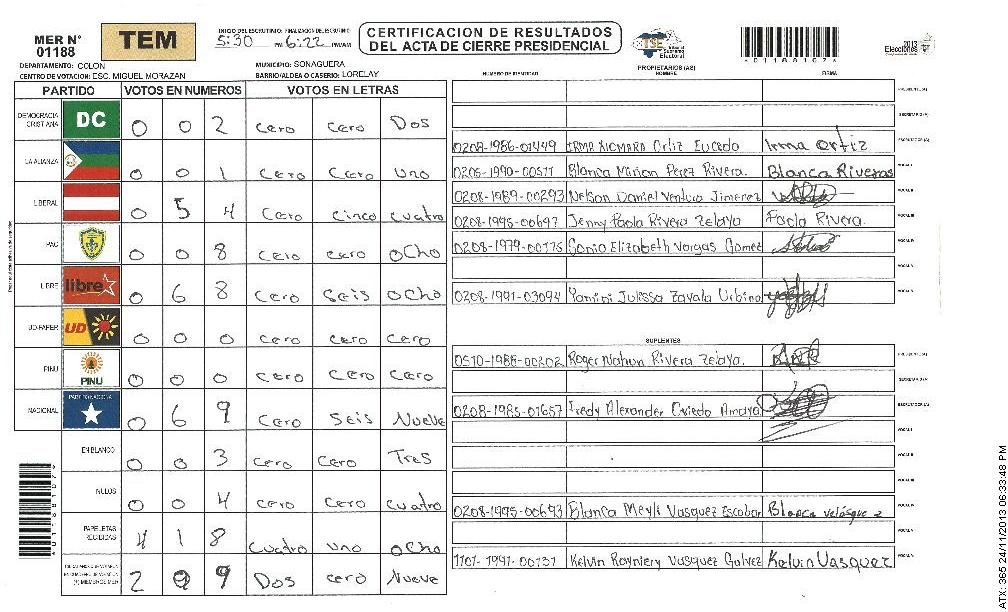 MER N° 01188
TEM
INICIO DEL ESCRUTINIO: 5:30 PM FINALIZACION DEL ESCRUTINIO: 6:22 PM/AM
CERTIFICACION DE RESULTADOS
DEL ACTA DE CIERRE PRESIDENCIAL
TSE Tribunal Supremo Electoral
*01188107*
2013 Elecciones
DEPARTAMENTO: COLON
MUNICIPIO: SONAGUERA
CENTRO DE VOTACION: ESC. MIGUEL MORAZAN
BARRIO/ALDEA O CASERIO: LORELAY
PROPIETARIOS (AS)
NUMERO DE IDENTIDAD NOMBRE FIRMA
PARTIDO VOTOS EN NUMEROS VOTOS EN LETRAS
DEMOCRACIA CRISTIANA DC 0 0 2 cero cero Dos
LA ALIANZA 0 0 1 Cero Cero Uno
LIBERAL 0 5 4 Cero Cinco cuatro
PAC 0 0 8 Cero cero ocho
LIBRE libre 0 6 8 Cero Seis ocho
UD-FAPER UD 0 0 0 Cero Cero Cero
PINU PINU 0 0 0 Cero Cero Cero
NACIONAL PARTIDO NACIONAL 0 6 9 Cero Seis Nueve
EN BLANCO 0 0 3 cero cero Tres
NULOS 0 0 4 cero cero cuatro
PAPELETAS RECIBIDAS 4 1 8 cuatro uno ocho
2 Dos cero Nueve
PRESIDENTE (A)
SECRETARIO (A)
0208-1986-01449 IRMA XIOMARA Ortiz Euceda Irma ortiz ESCRUTADOR (A)
Blanca Mirian Perez Rivera. Blanca Riveras VOCAL I
0208-1989-00293 Nelson Daniel Ventura Jimenez VOCAL II
0208-1995-00697 Jenny Paola Rivera Zelaya Paola Rivera. VOCAL III
Sonia Elizabeth Vargas Gomez VOCAL IV
0208-1991-03094 Yamini Julissa Zavala Urbina VOCAL V
SUPLENTES
0510-1988-00202 Roger Nahun Rivera Zelaya. PRESIDENTE (A)
SECRETARIO (A)
0208-1985-01657 Fredy Alexander Oviedo Amaya ESCRUTADOR (A)
VOCAL I
VOCAL II
VOCAL III
0208-1995-00693 Blanca Meyli Vasquez Escobar Blanca velasquez VOCAL IV
VOCAL V
Kelvin Rayniery Vasquez Galvez Kelvin Vasquez
*01188107*
ATX: 365 24/11/2013 06:33:48 PM